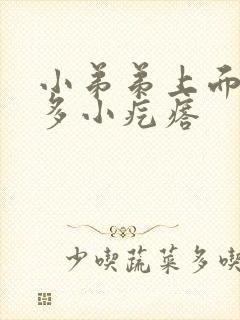 小弟弟上而
多小疙瘩
少喫蔬菜多喫